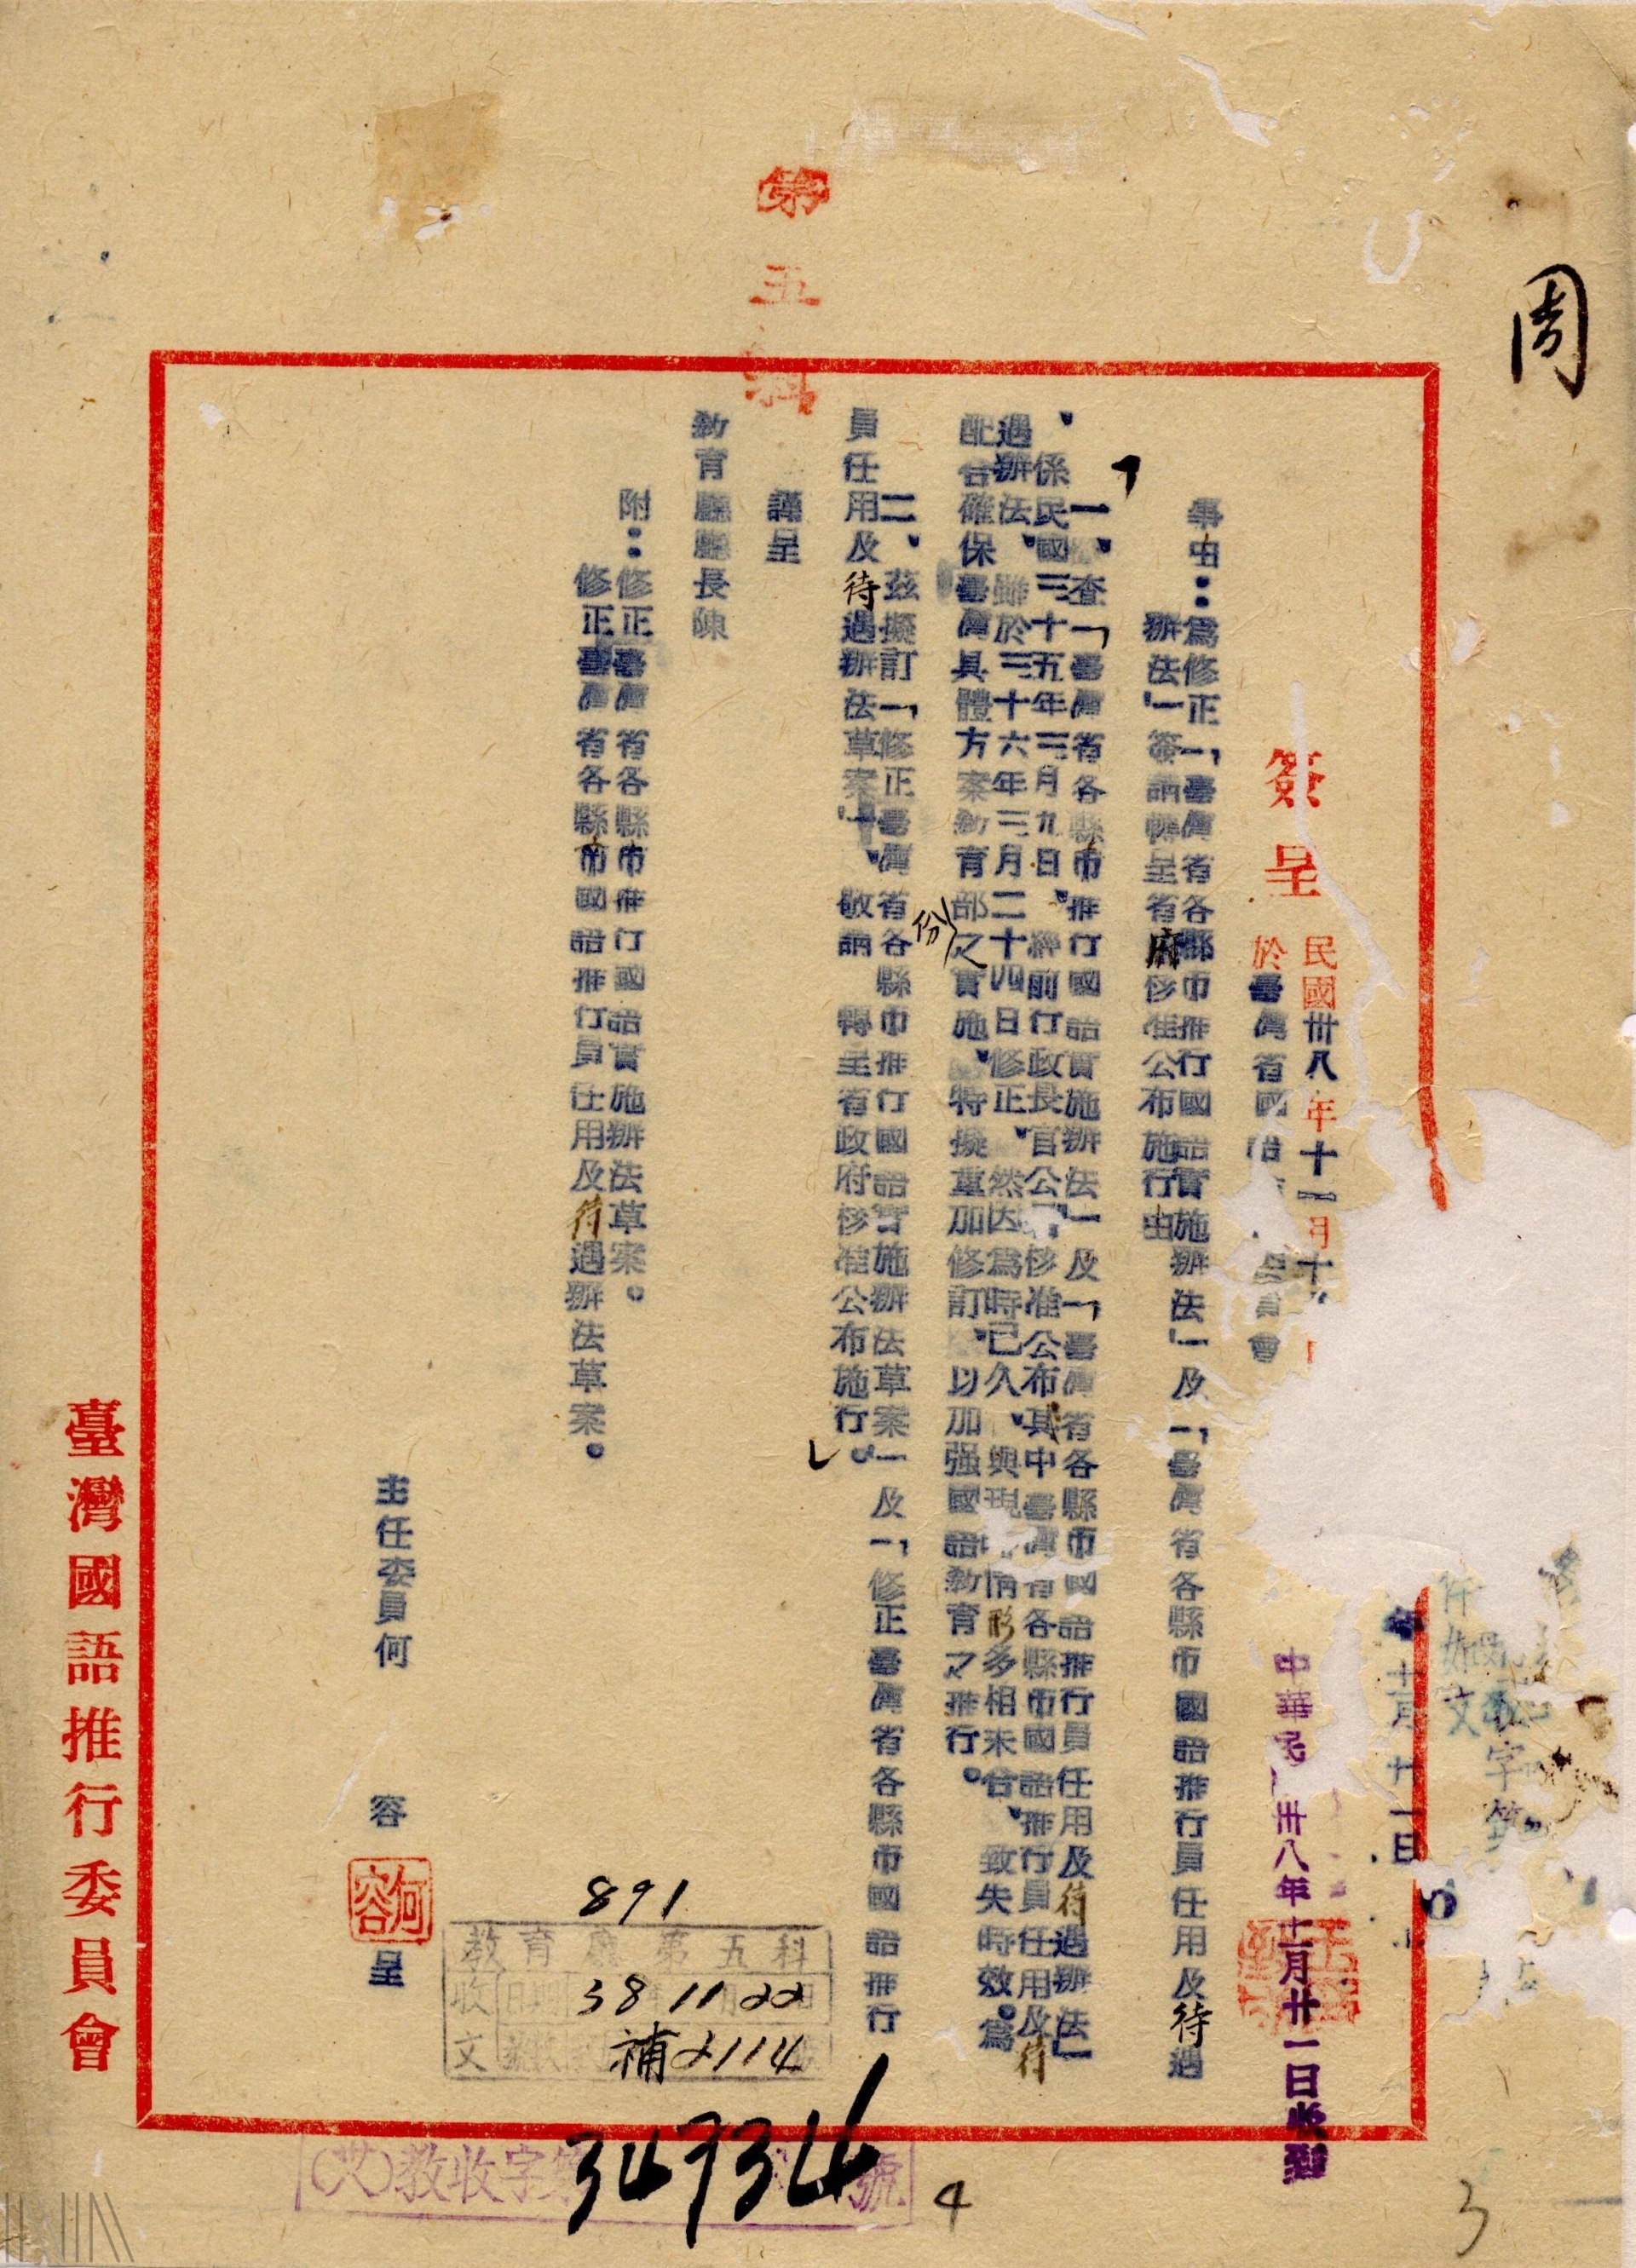 周
第五科
簽呈
民國卅八年十一月十
於臺灣省國語
事由：為修正「臺灣省各縣市推行國語實施辦法」及「臺灣省各縣市國語推行員任用及待遇
辦法」簽請轉呈省府核准公布施行由
一、查「臺灣省各縣市推行國語實施辦法」及「臺灣省各縣市國語推行員任用及待遇辦法」
、係民國三十五年三月九日、經前行政長官公署核准公布其中臺灣省各縣市國語推行員任用及待
遇辦法、雖於三十六年三月二十四日修正、然因為時已久、與現時情形多相未合、致失時效。為
配合確保臺灣具體方案教育部份之實施、特擬重加修訂、以加强國語教育之推行。
二、茲擬訂「修正臺灣省各縣市推行國語實施辦法草案」及「修正臺灣省各縣市國語推行
員任用及待遇辦法草案」、敬請 轉呈省政府核准公布施行。
謹呈
教育廳廳長陳
附：修正臺灣省各縣市推行國語實施辦法草案。
修正臺灣省各縣市國語推行員任用及待遇辦法草案。
主任委員何 容 呈
何容
臺灣國語推行委員會
中華民 卅八年十一月廿一日收到
年十一月廿一日
件如文
字第
891
教育廳第五科
收文
日期 38 11 22
補2114
(卅八)教收字第34734號
4
3